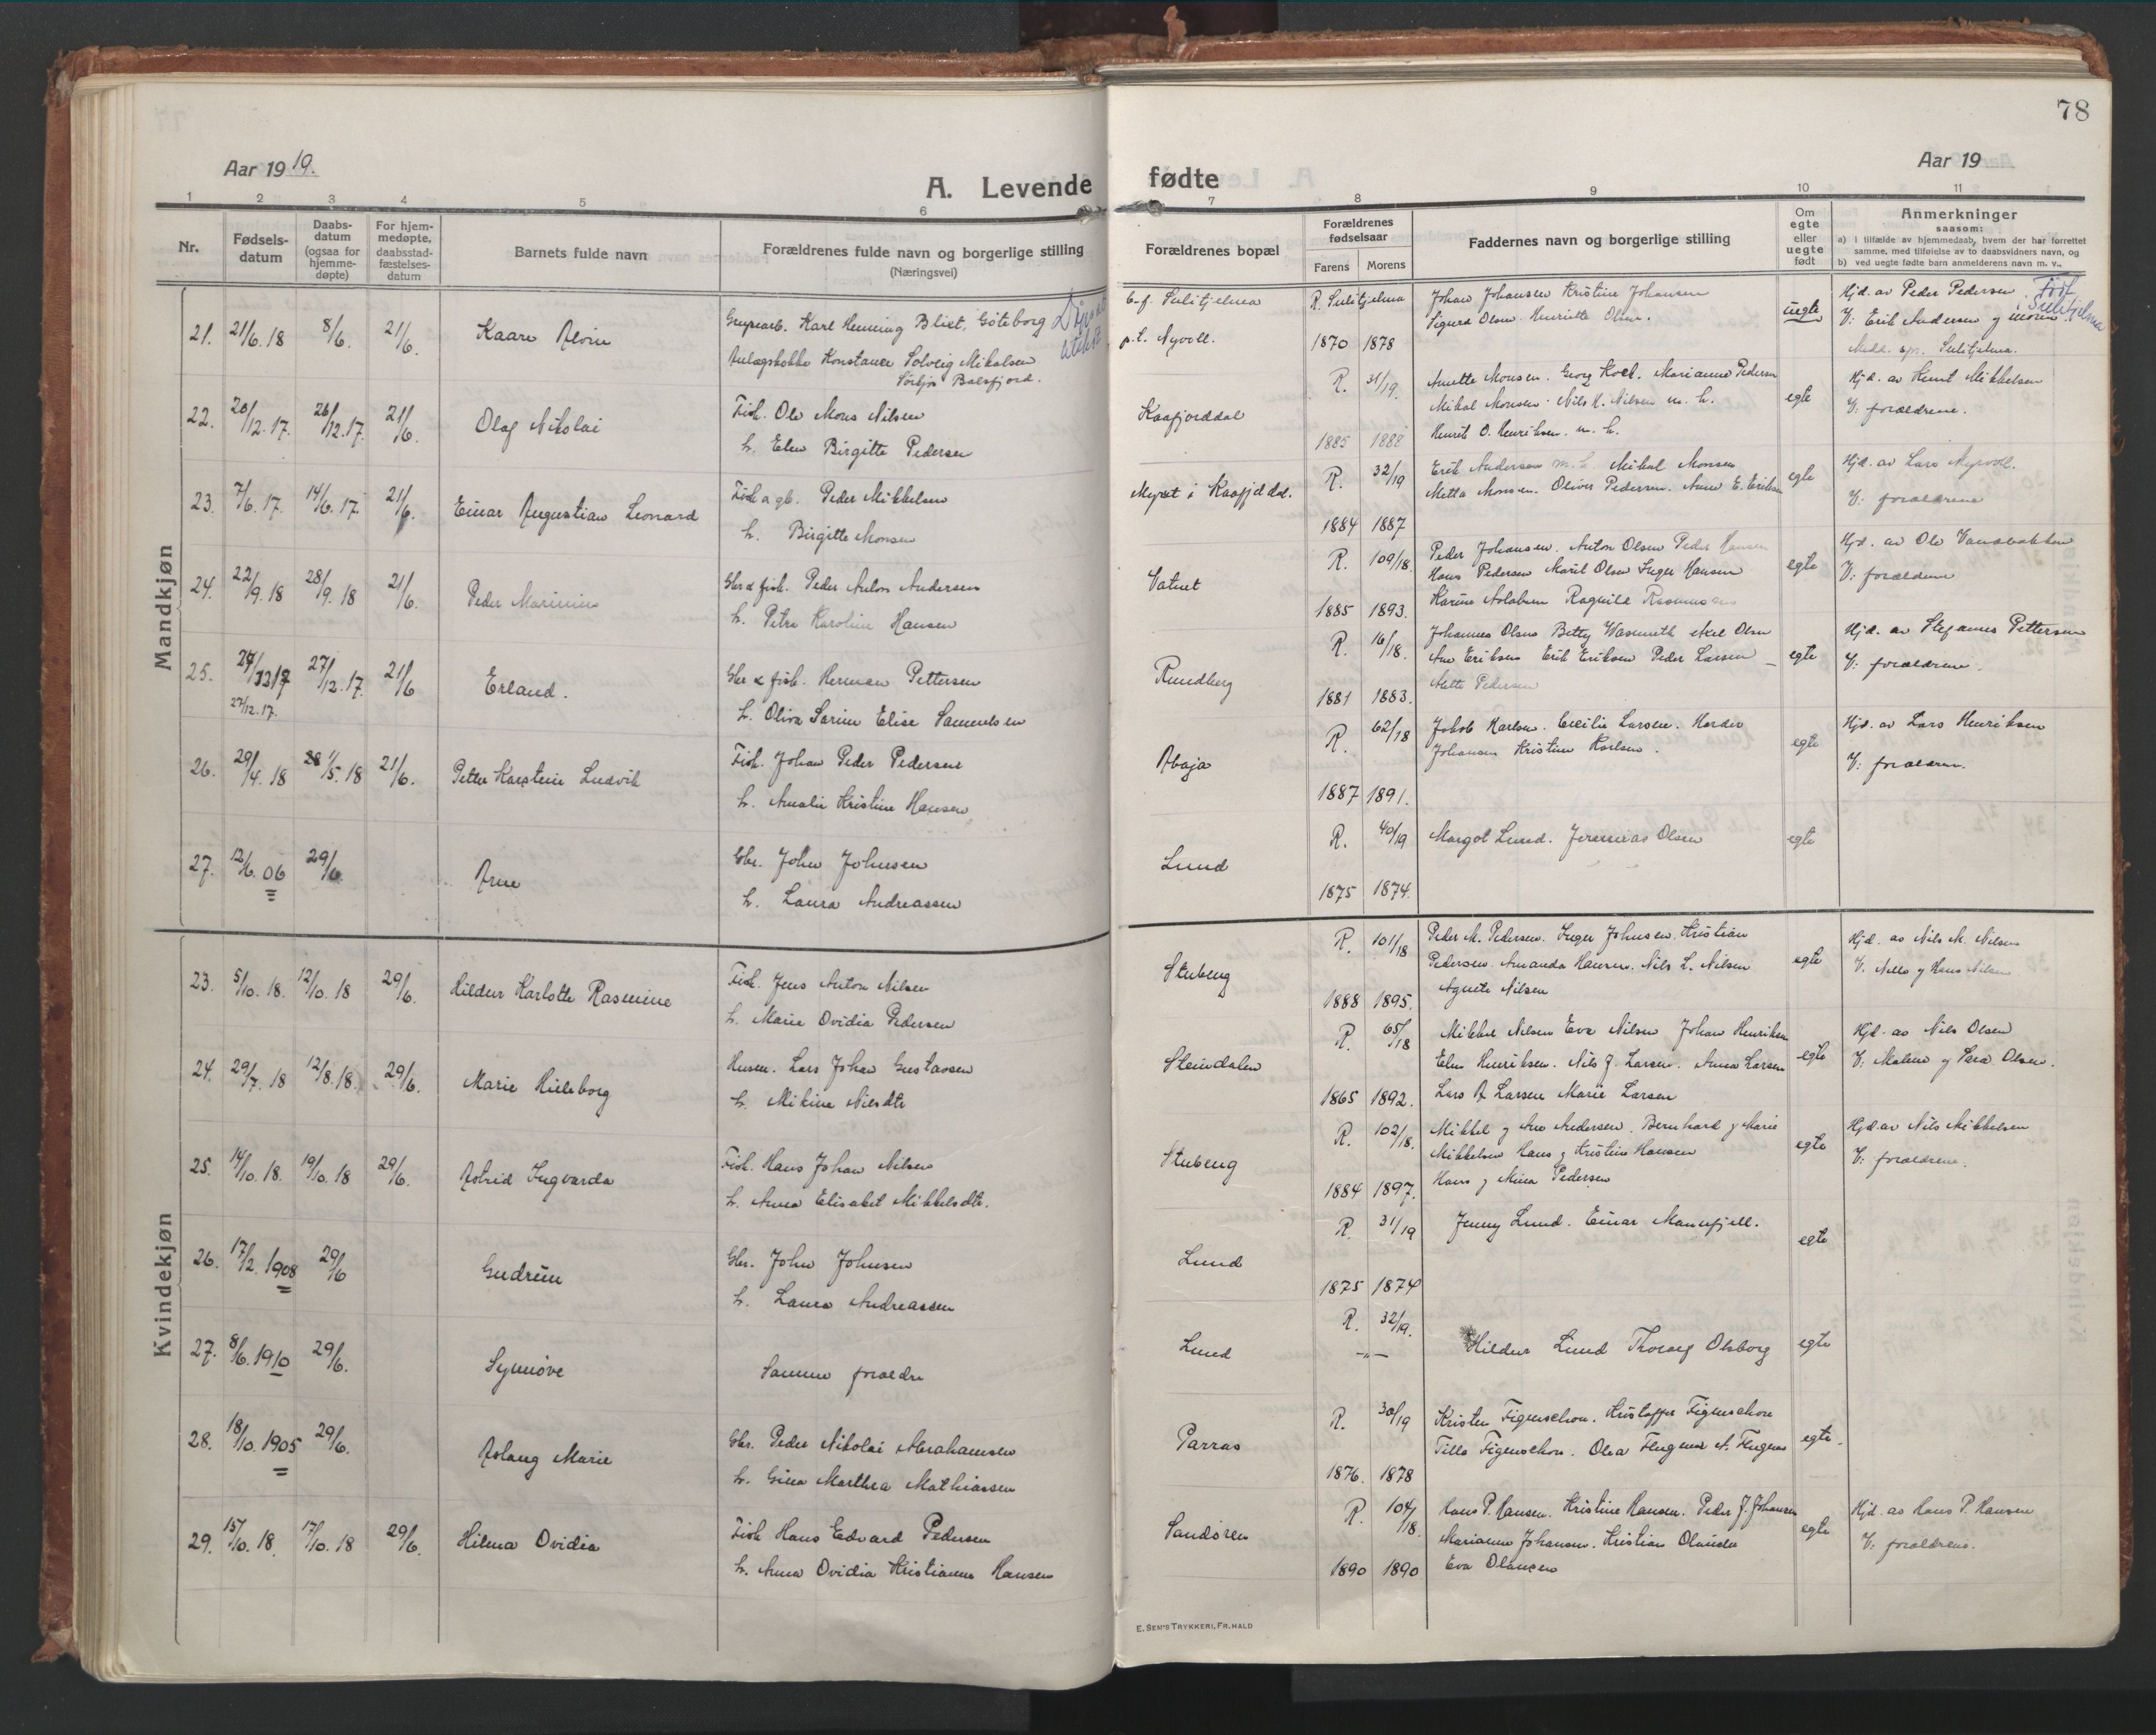 78
Aar 19 19.
Aar 19
A. Levende fødte
1 2 3 4 5 6 7 8 9 10 11
Nr.
Fødsels-
datum
Daabs-
datum
(ogsaa for
hjemme-
døpte)
For hjem-
medøpte,
daabsstad-
fæstelses-
datum
Barnets fulde navn
Forældrenes fulde navn og borgerlige stilling
(Næringsvei)
Forældrenes bopæl
Forældrenes
fødselsaar
Farens Morens
Faddernes navn og borgerlige stilling
Om
egte
eller
uegte
født
Anmerkninger
saasom:
a) i tilfælde av hjemmedaab, hvem der har forrettet
samme, med tilføielse av to daabsvidners navn, og
b) ved uegte fødte barn anmelderens navn m. v.
Mandkjøn
21. 21/6. 18 8/6. 21/6. Kaare Alvin
Grupearb. Karl Henning Blixt, Göteborg
Anlægskokke Konstance Solveig Mikalsen
Balsfjord.
Sulitjelma
p.t. Nyvoll.
R. Sulitjelma
1870 1878
Johan Johansen Kristine Johansen
Sigurd Olsen Henriette Olsen.
uegte
Hjd. av Peder Pedersen
V: Erik Andersen og moren
Medd. spr. Sulitjelma.
Født i Sulitjelma
22. 20/12. 17. 26/12. 17. 21/6. Olaf Nikolai
Fisk. Ole Mons Nilsen
h. Elen Birgitte Pedersen
Kaafjorddal
R. 31/19.
1885 1888
Anette Monsen. Georg Koch. Marianne Pedersen
Mikal Monsen. Nils N. Nilsen m. h.
Henrik O. Henriksen. m. h.
egte
Hjd. av Hemt Mikkelsen
V: forældrene.
23. 7/6. 17. 14/6. 17. 21/6. Einar Augustian Leonard
Fisk a gb. Peder Mikkelsen
h. Birgitte Monsen
Myret i Kaafjddal.
R. 32/19
1884 1887
Erik Andersen m. h. Mikal Monsen
Metta Monsen. Oliver Pedersen. Anne E. Eriksen
egte
Hjd. av Lars Myrvoll.
V: forældrene
24. 22/9. 18 28/9. 18 21/6. Peder Marinius
Gbr & fisk. Peder Anton Andersen
h. Petra Karoline Hansen
Vatnet
R. 109/18.
1885 1893.
Peder Johansen. Anton Olsen Peder Hansen
Hans Pedersen Maril Olsen Inger Hansen
Karine Ragnild Rasmussen
egte
Hjd. av Ole Vandbakken
V: forældrene
25. 27/12. 17. 27/12. 17. 21/6 Erland.
Gbr & fisk. Herman Pettersen
h. Oliva Sarine Elise Samuelsen
Rundberg
R. 16/18.
1881 1883.
Johannes Olsen Betty Wasmuth Aksel Olsen
Ane Eriksen Erik Eriksen Peder Larsen
Mette Pedersen
egte
Hjd. av Stefanus Pettersen
V: forældrene.
26. 29/4. 18 1/5. 18 21/6. Petter Karstein Ludvik
Fisk. Johan Peder Pedersen
h. Amalie Kristine Hansen
Abaja
R. 62/18
1887 1891.
Jakob Karlsen. Cecilie Larsen. Herder
Johansen Kristine Karlsen.
egte
Hjd. av Lars Henriksen
V: forældren.
27. 12/6. 06 29/6. Arne
Gbr. John Johnsen
h. Laura Andreassen
Lund
R. 40/19
1875 1874.
Margot Lund. Jeremias Olsen
egte
Kvindekjøn
23. 5/10. 18. 12/10. 18 29/6. Hildur Karlotte Rasmine
Fisk. Jens Anton Nilsen
h. Marie Ovidia Pedersen
Stubeng
R. 101/18
1888 1895.
Peder M. Pedersen. Inger Johnsen. Kristian
Pedersen. Amanda Hansen. Nils L. Nilsen
Agnete Nilsen
egte
Hjd. av Nils M. Nilsen
V. Nille og Hans Nilsen
24. 29/7. 18 12/8. 18. 29/6. Marie Hilleborg
Husm. Lars Johan Gustavsen
h. Mikine Nilsdtr
Steindalen
R. 65/18
1865 1892.
Mikkel Nilsen Eva Nilsen Johan Henriksen
Elen Henriksen. Nils J. Larsen. Anna Larsen
Lars A Larsen Marie Larsen
egte
Hjd. av Nils Olsen
V: Malene og Sara Olsen.
25. 14/10. 18. 19/10. 18 29/6. Astrid Ingvarda
Fisk. Hans Johan Nilsen
h. Anna Elisabet Mikkelsdtr.
Stubeng
R. 102/18.
1884 1897.
Mikkel og Ane Andersen. Bernhard og Marie
Mikkelsen Hans og Kristine Hansen
Hans og Mina Pedersen
egte
Hjd. av Nils Mikkelsen
V: forældrene.
26. 17/2. 1908 29/6 Gudrun
Gbr. John Johnsen
h. Laura Andreassen
Lund
R. 31/19
1875 1874
Jenny Lund. Einar Mannfjell.
egte
27. 8/6. 1910 29/6. Synnøve
Samme forældre
Lund
R. 32/19.
—"—
Hildur Lund Thoralf Olsborg
egte
28. 18/10. 1905 29/6. Aslaug Marie
Gbr. Peder Nikolai Abrahamsen
h. Gina Marthea Mathiassen
Parras
R. 30/19
1876. 1878
Kristen Figenschou. Kristoffer Figenschou
Tilla Figenschou. Olea Flugeim A. Flugeim
egte.
29. 15/10. 18. 17/10. 18 29/6. Hilma Ovidia
Fisk Hans Edvard Pedersen
h. Anna Ovidia Kristianna Hansen
Sandøren
R. 104/18.
1890 1890
Hans P. Hansen. Kristine Hansen. Peder J. Johansen
Marianne Johansen. Kristian Olausen
Eva Olausen
egte
Hjd. av Hans P. Hansen
V: forældrene.
E. SEM'S TRYKKERI, FR.HALD